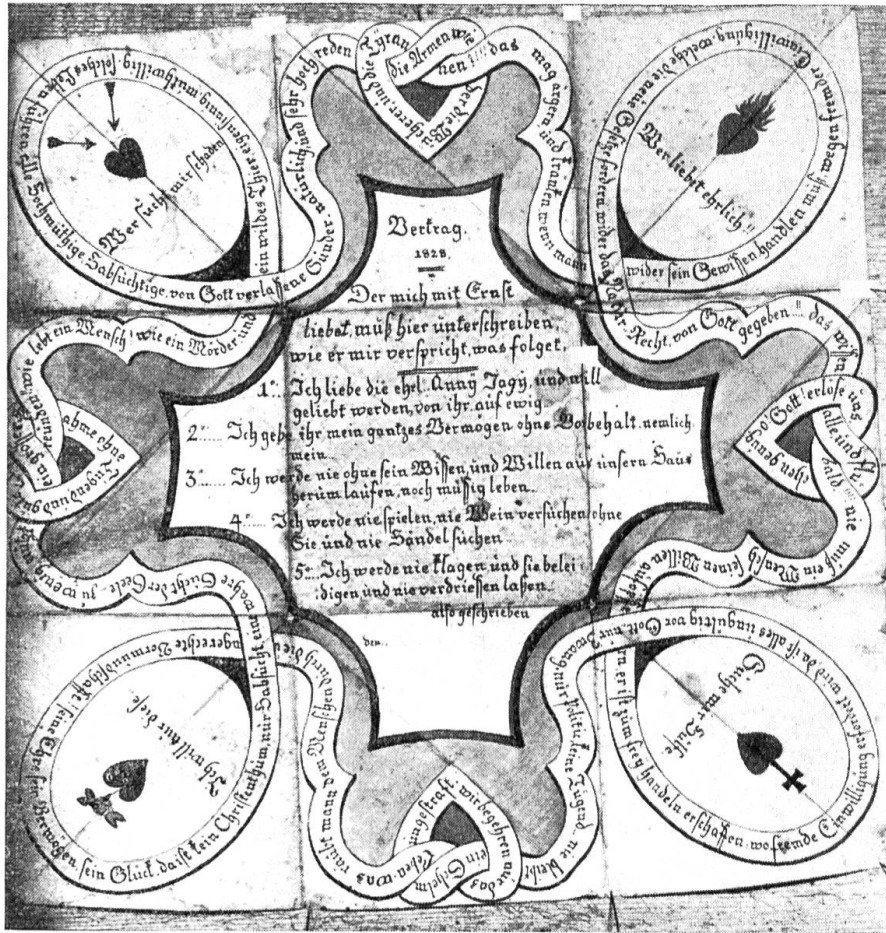 Vertrag.
1828.
Der mich mit Ernst
liebet, müß hier unterschreiben,
wie er mir verspricht, was folget.
1º... Ich liebe die ehel. Anny Jagÿ, und will
geliebt werden, von ihr auf ewig.
2º..... Ich gebe ihr mein gantzes Vermogen ohne Vorbehalt. nemlich
mein..
3º...... Ich werde nie ohne sein Wissen, und Willen aus unsern Haus
herum laufen, noch müssig leben..
4º.... Ich werde nie spielen, nie Wein versüchen, ohne
Sie, und nie Händel süchen..
5º.. Ich werde nie klagen, und sie belei-
digen und nie verdriessen lassen..
also geschrieben
den..
Wer sücht mir schaden
Wer liebet ehrlich!!
Ich will nur diese
Süche nur Hülfe
ein wildes Thier, eigensinnig, muthwillig, solches Leben führen alle Hochmüthige, Habsüchtige, von Gott verlassene Sünder. natürlich und sehr hoch reden
über die Tÿran
die Armen wie
das mag ärgern und kranken wenn mann
wider sein Gewissen handlen müß wegen fremder Einwilligung, welche die neue Gesetze fordern, wider das Natur-Recht, von Gott gegeben!!. das
O! Gott! erlöse uns
alle und
bald
nie müß ein Mensch seinen Willen
er ist zum freÿ handeln erschaffen, wo fremde Einwilligung erfordert wird da ist alles üngültig vor Gott, nür Zwang nür Politic keine Tügend. nie bleibt
üngestraft, wir begehren nür das
ein Geheim
Leben was
raubt mann dem Menschen dürch die
ungerechte Vormündschaft! seine Ehre, sein Vermögen, sein Glück, da ist kein Christenthum, nür Habsücht, eine wahre Sücht der Seele. zu wenig
ohne
Tügend und
wie lebt ein Mensch! wie ein Mörder und